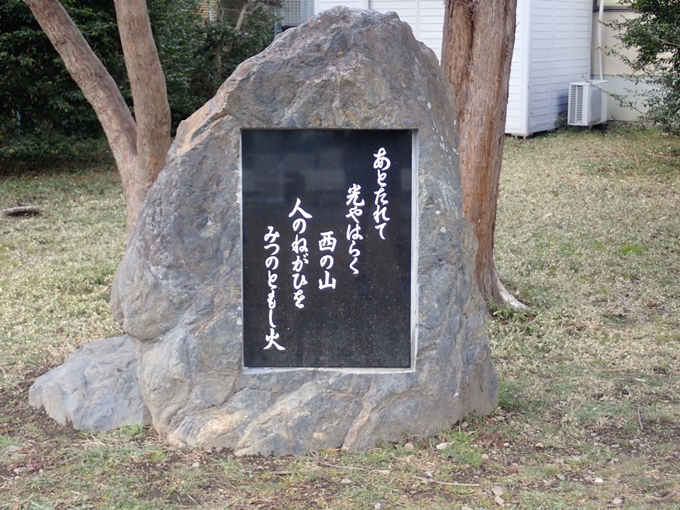 あとたれて
光やはらく
西の山
人のねがひを
みつのともし火